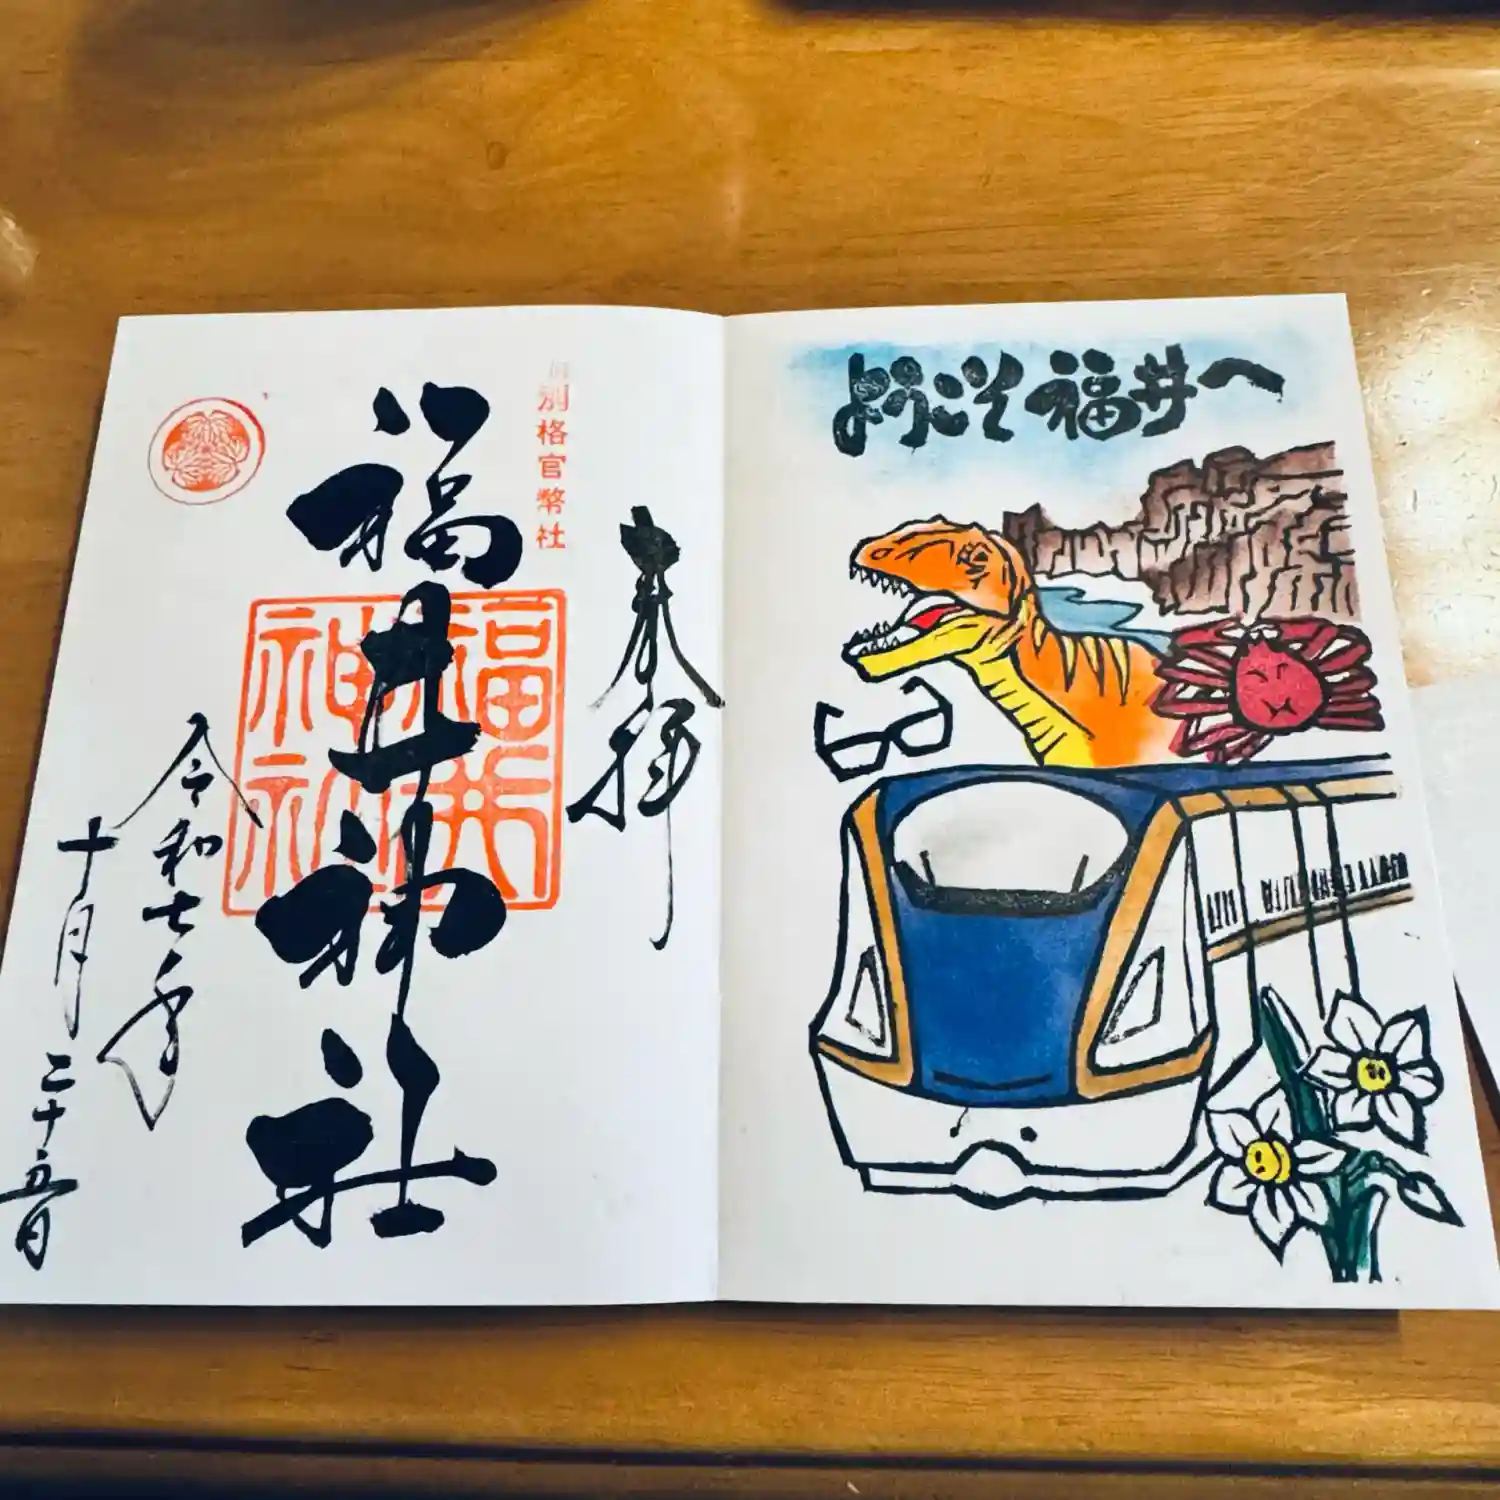 奉拝
別格官幣社
福井神社
福井神社
令和七年
十月二十五日
ようこそ福井へ